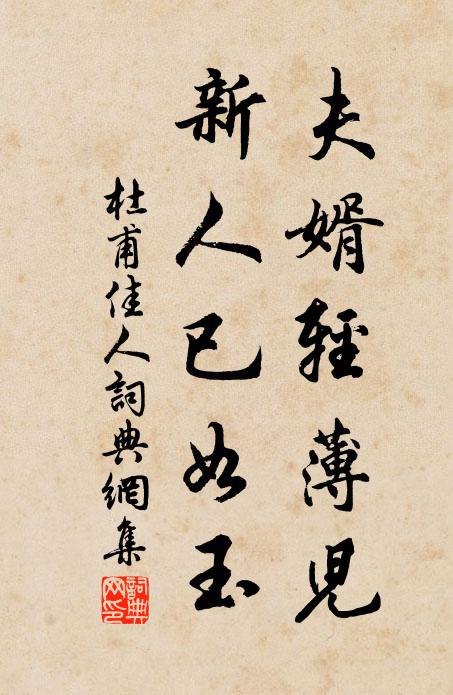 夫婿輕薄兒
新人已如玉
杜甫佳人詞典網集
詞典網印